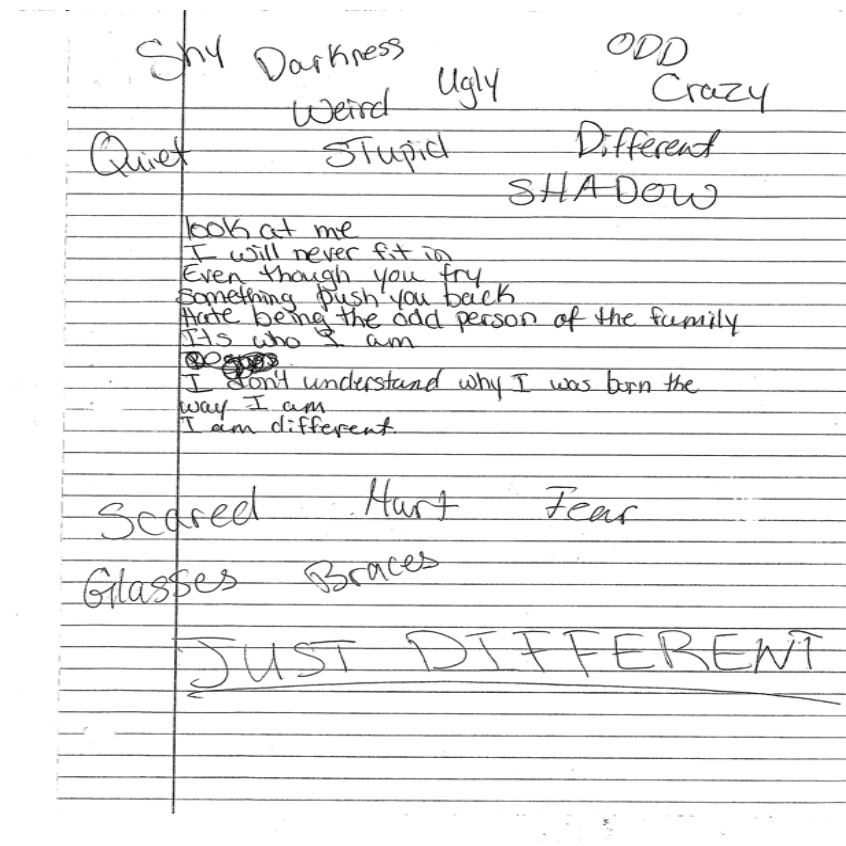 Shy Darkness ODD
Ugly Crazy
Weird
Quiet STupid Different
SHADOW
look at me
I will never fit in
Even though you try
something push you back
Hate being the odd person of the family
Its who I am
I don't understand why I was born the
way I am
I am different.
Scared Hurt Fear
Glasses Braces
JUST DIFFERENT